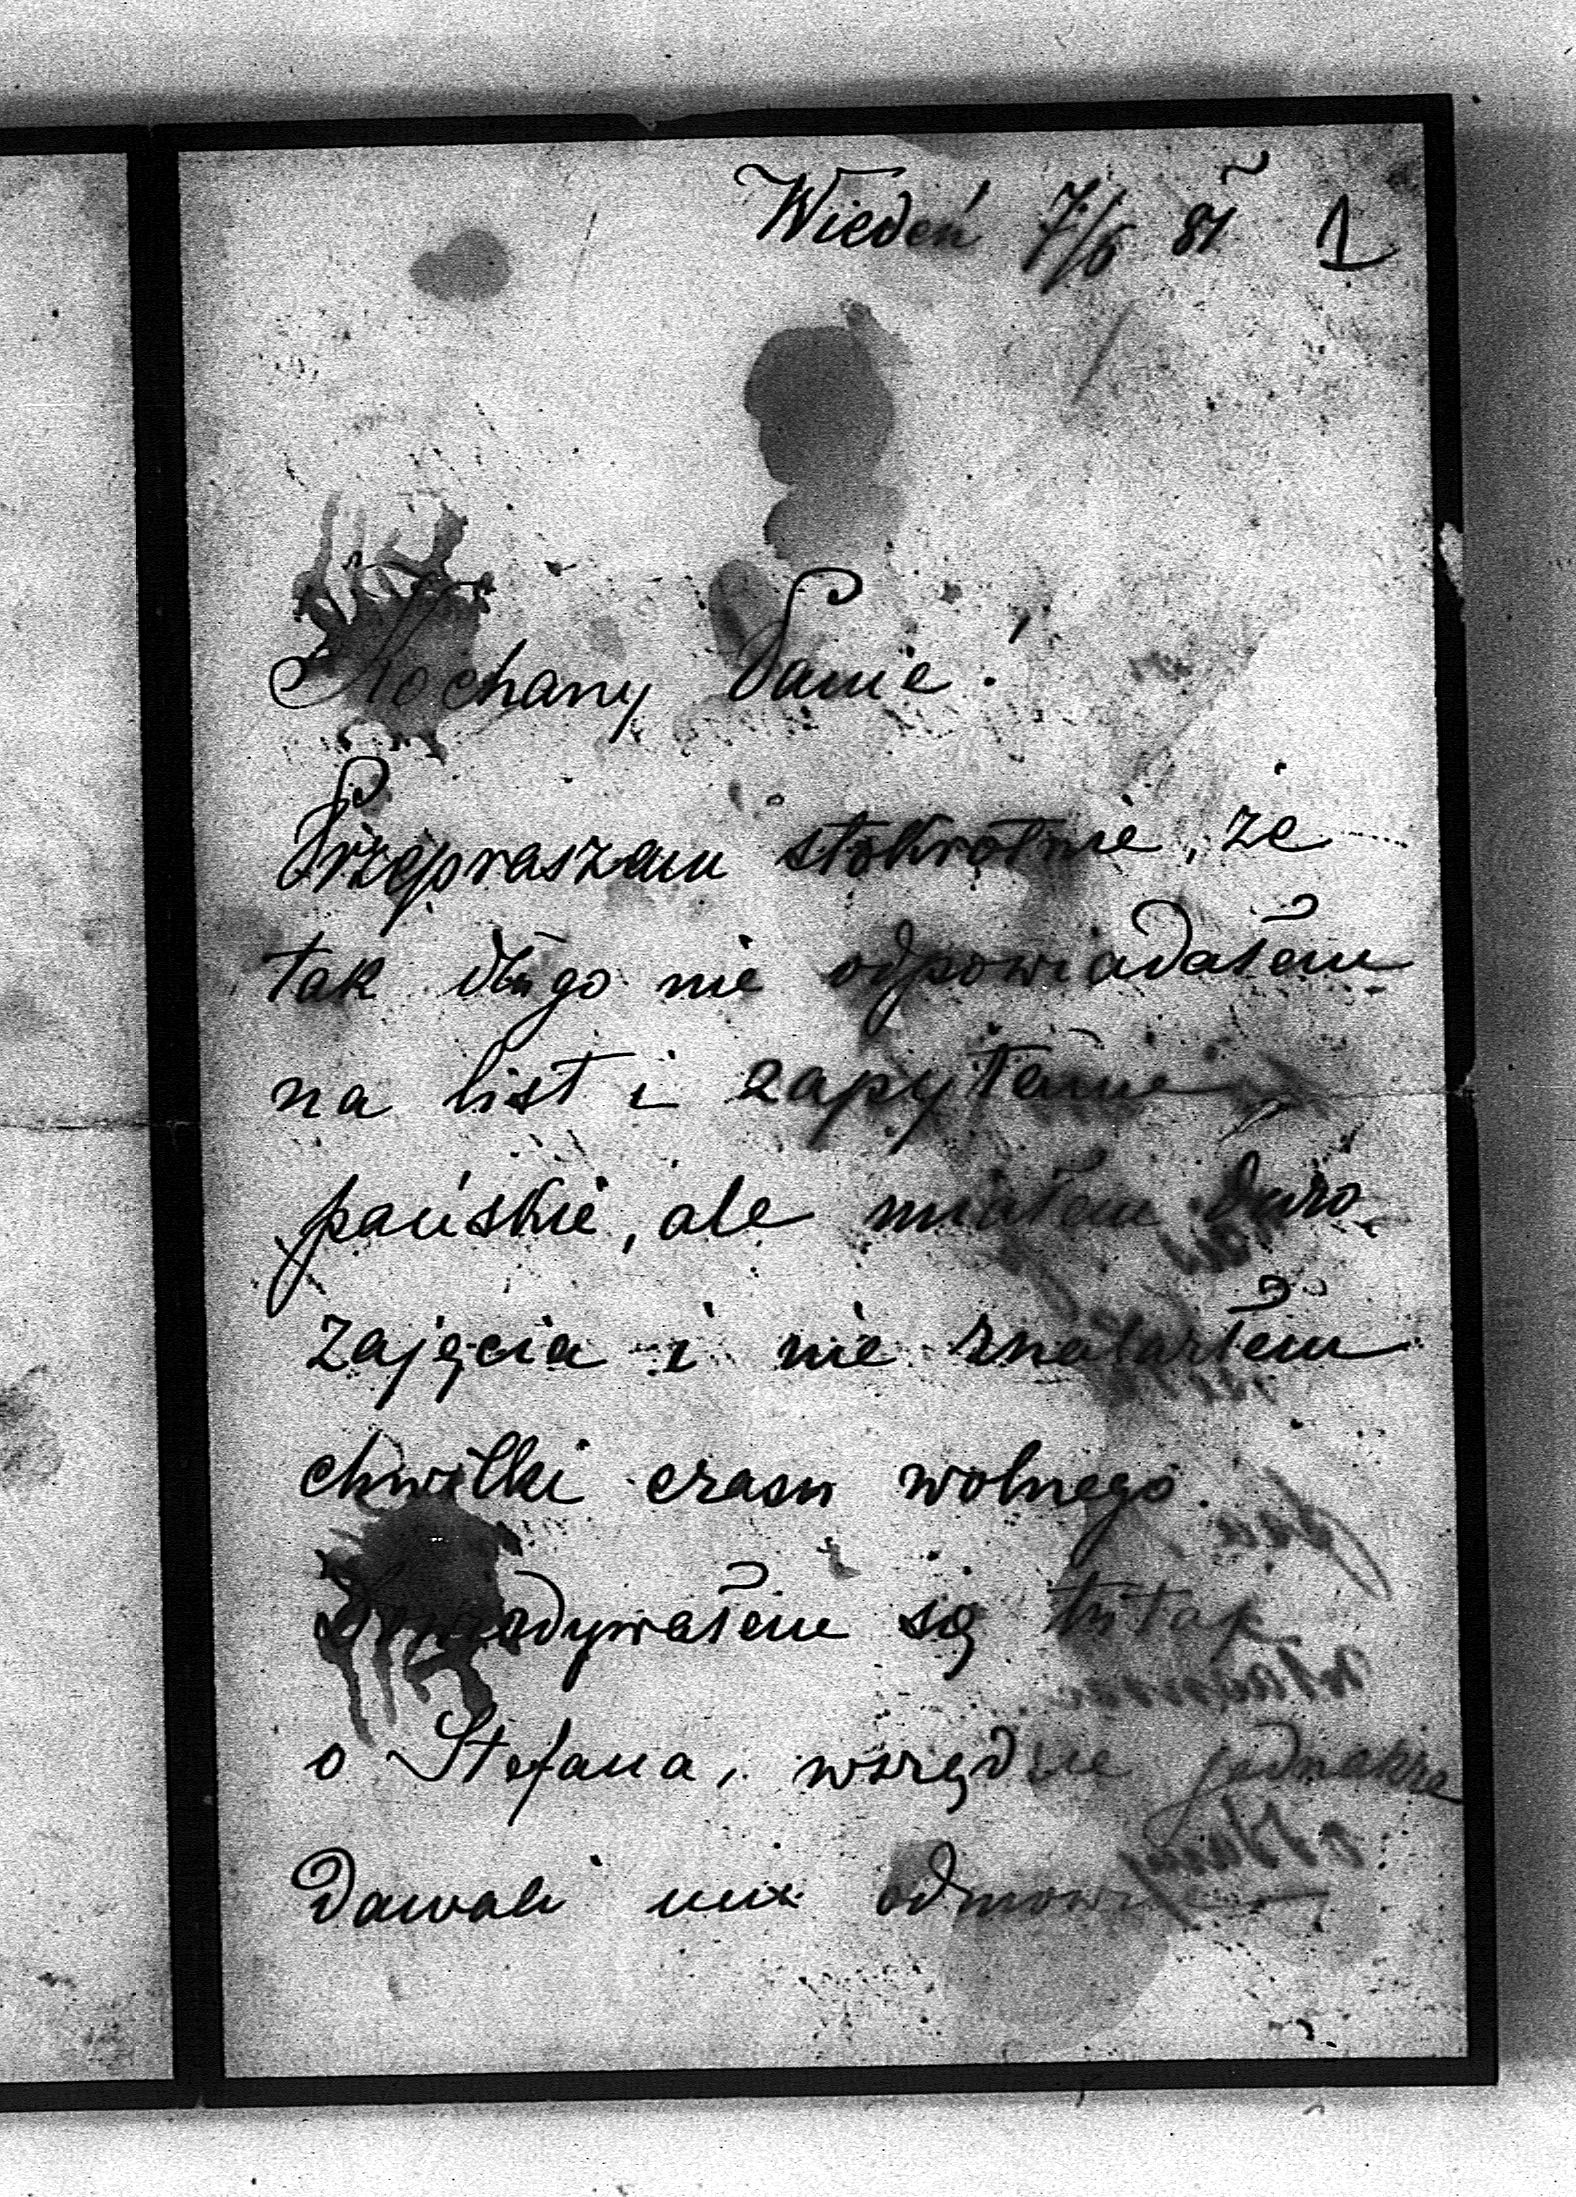 Wiedeń 7/5 81 1
Kochany Panie!
Przepraszam stokrotnie, że
tak długo nie odpowiadałem
na list i zapytanie
pańskie, ale miałem dużo
zajęcia i nie znalazłem
chwilki czasu wolnego.
Dowiadywałem się tutaj
o Stefana, wszędzie jednakże
dawali mi